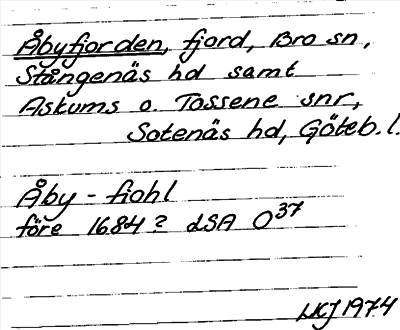 Åbyfjorden, fjord, Bro sn,
Stångenäs hd samt
Askums o. Tossene snr,
Sotenäs hd, Göteb. l.
Åby - fiohl
före 1684? dSA O³⁷
1974